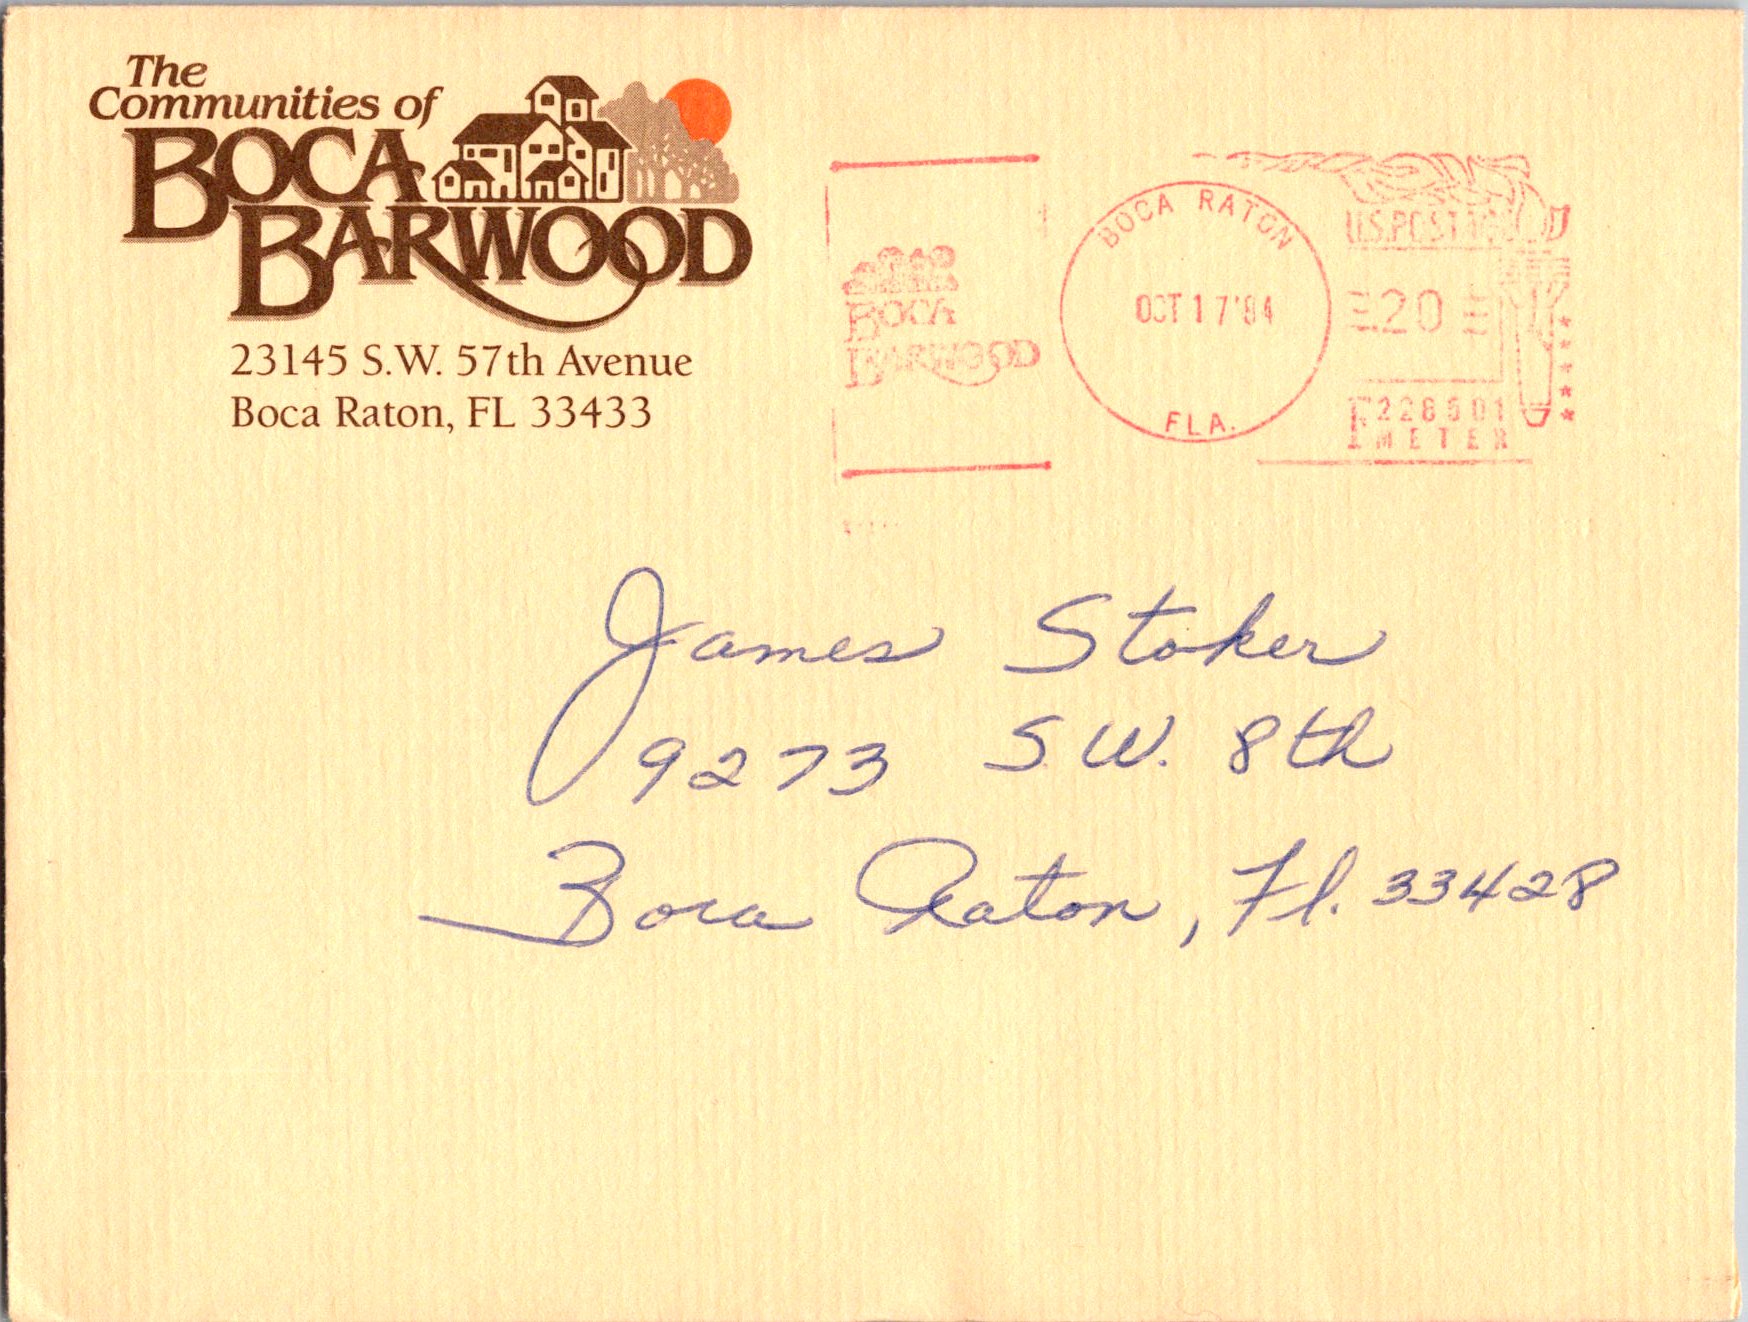 The
Communities of
BOCA
BARWOOD
23145 S.W. 57th Avenue
Boca Raton, FL 33433
BOCA
BARWOOD
BOCA RATON
OCT 17 '84
FLA.
U.S. POSTAGE
20
METER
James Stoker
9273 S.W. 8th
Boca Raton, Fl. 33428